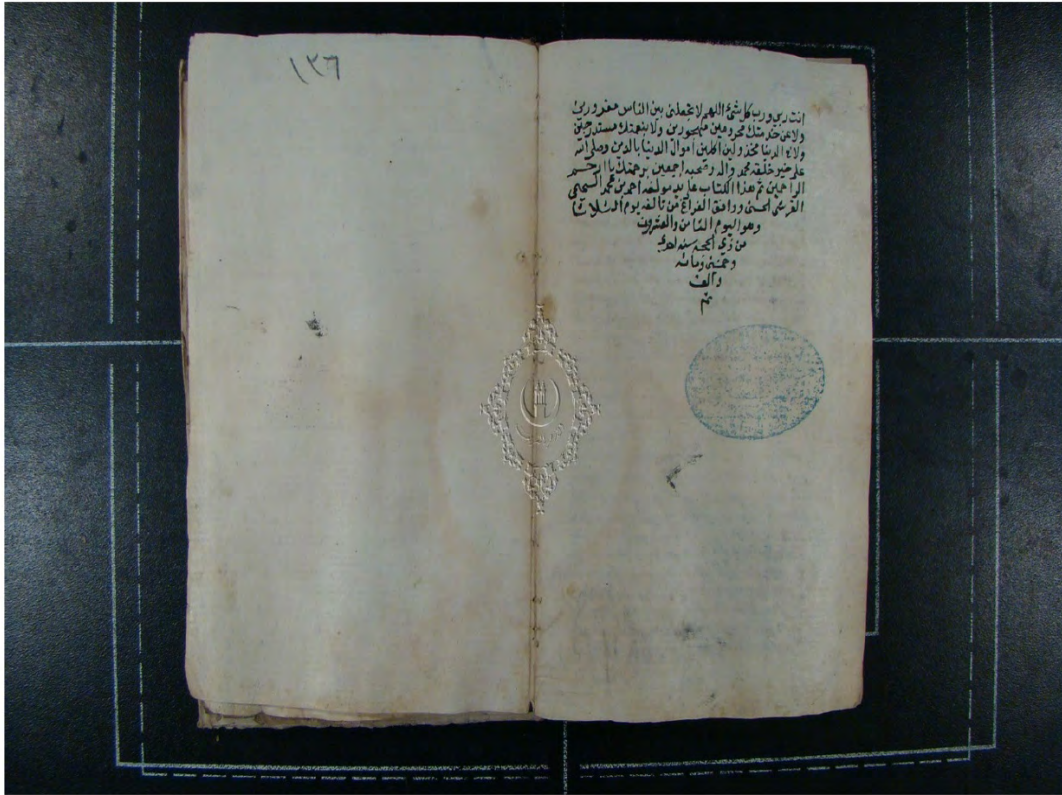 انت ربي ورب كل شئ اللهم لا تجعلني بين الناس مغرورين
ولا عن خدمتك محرومين مهجورين ولا بنعمتك مستدرجين
ولا في الدنيا مخذولين اكلين اموال الدنيا بالدين وصلى الله
على خير خلقه محمد واله وصحبه اجمعين برحمتك يا ارحم
الراحمين تم هذا الكتاب على يد مولفه احمد بن محمد السحيمي
القرشي الحسني ووافق الفراغ من تاليفه يوم الثلاثا
وهو اليوم الثامن والعشرون
من ذي الحجه سنه احدي
وخمسين ومائه
والف
تم
١٣٦